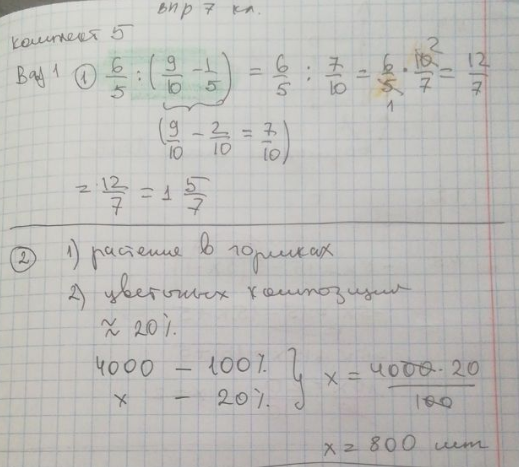 впр 7 кл.
комплект 5
Вар 1 ① 6/5 : (9/10 - 1/5) = 6/5 : 7/10 = 6/5 1 · 10 2/7 = 12/7
(9/10 - 2/10 = 7/10)
= 12/7 = 1 5/7
② 1) растение в горшках
2) цветочных композиций
≈ 20%.
4000 - 100% } x = 4000 · 20/100
x - 20%.
x = 800 шт